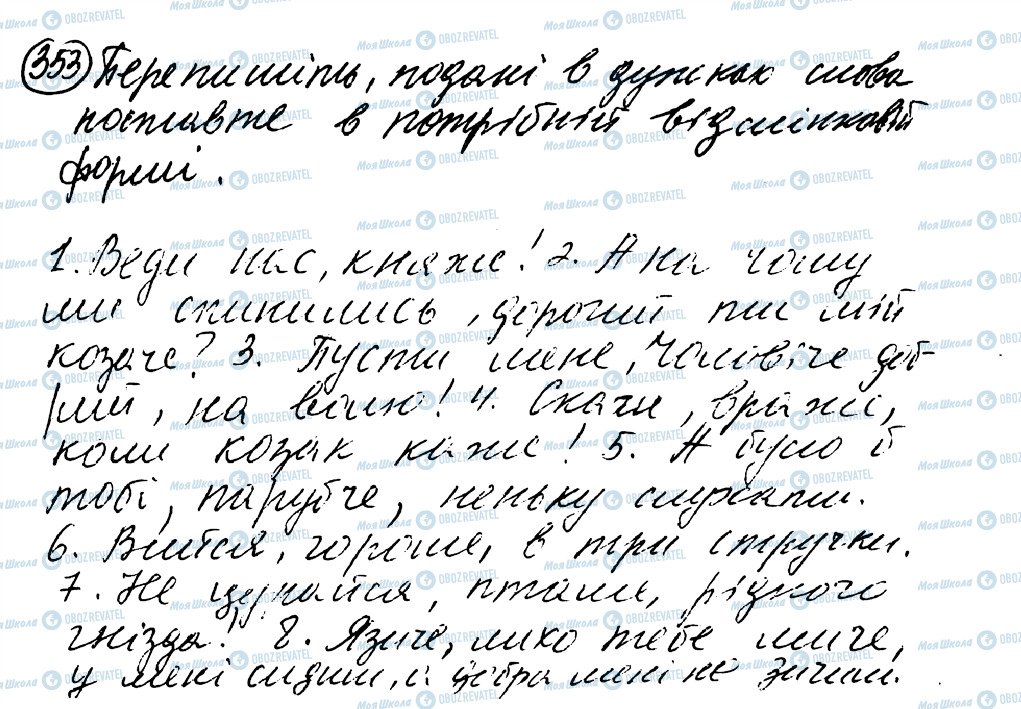 353 Перепишіть, подані в дужках слова
поставте в потрібній відмінковій
формі.
1. Веди нас, княже! 2. А на чому
ми спинились, дорогий ти мій
козаче? 3. Пусти мене, чоловіче доб-
рий, на волю! 4. Скачи, враже,
коли козак каже! 5. А було б
тобі, парубче, неньку слухати.
6. Вийся, гороше, в три стручки.
7. Не цурайся, пташе, рідного
гнізда! 8. Язиче, лихо тебе миче,
у мені сидиш, а добра мені не зичиш.